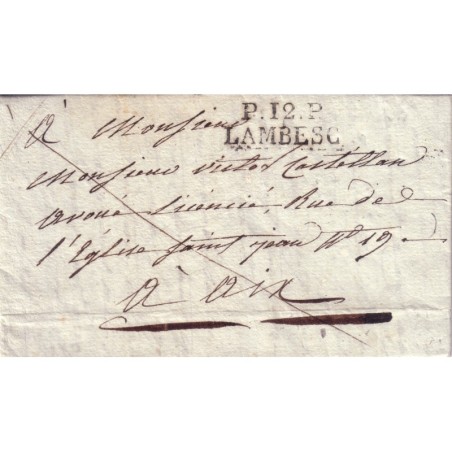 P.12.P.
LAMBESC
à Monsieur
Monsieur Victor Castellan
avoué Licencié, Rue de
l'Église Saint jean N° 19
à aix